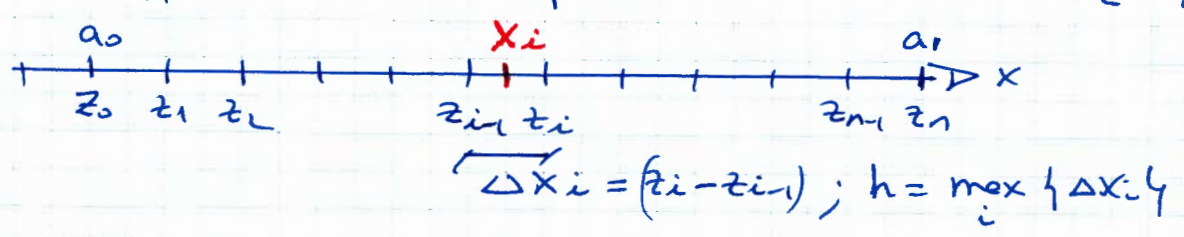 a₀ xᵢ a₁
x
z₀ z₁ z₂ zᵢ₋₁ zᵢ zₙ₋₁ zₙ
Δxᵢ = (zᵢ - zᵢ₋₁) ; h = max {Δxᵢ}
i